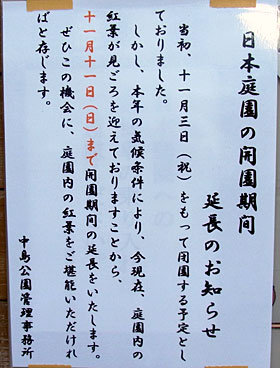 日本庭園の開園期間
延長のお知らせ
当初、十一月三日（祝）をもって閉園する予定とし
ておりました。
しかし、本年の気候条件により、今現在、庭園内の
紅葉が見ごろを迎えておりますことから、
十一月十一日（日）まで開園期間の延長をいたします。
ぜひこの機会に、庭園内の紅葉をご堪能いただけれ
ばと存じます。
中島公園管理事務所